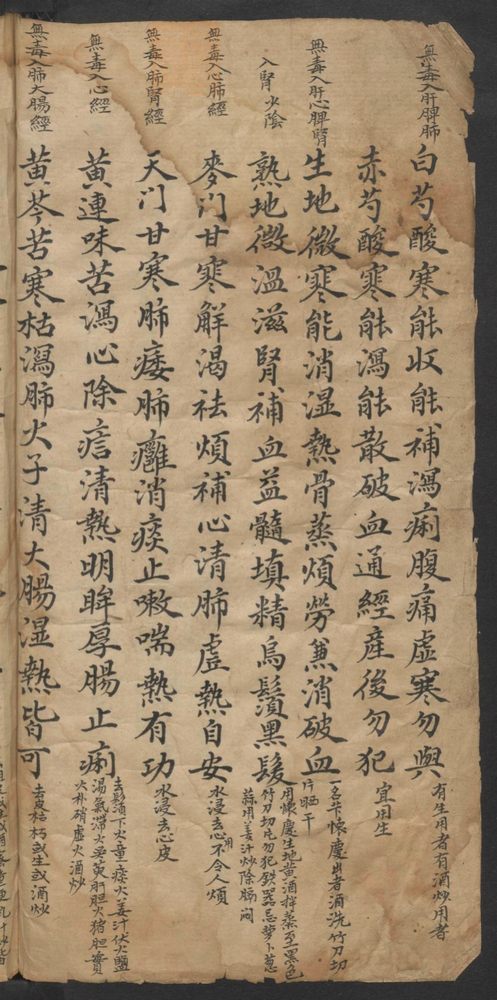 無毒入肝脾肺
白芍酸寒能收能補瀉痢腹痛虛寒勿與
有生用者有酒炒用者
赤芍酸寒能瀉能散破血通經產後勿犯
宜用生
無毒入肝心脾腎
生地微寒能消湿熱骨蒸煩勞兼消破血
一名芐懷慶出者酒洗竹刀切
片晒干
入腎少陰
熟地微溫滋腎補血益髓填精烏鬚黑髮
用懷慶生地黄酒拌蒸至黑色
竹刀切片勿犯鉄器忌萝卜葱
蒜用姜汁炒除膈闷
無毒入心肺經
麥门甘寒解渴祛煩補心清肺虛熱自安
水浸去心用不令人煩
無毒入肺腎經
天门甘寒肺痿肺癰消痰止嗽喘熱有功
水浸去心皮
無毒入心經
黄連味苦瀉心除痞清熱明眸厚腸止痢
去鬚下火童痰火姜汁伏火鹽
湯氣滞火吴萸肝胆火猪胆實
火朴硝虛火酒炒
無毒入肺大腸經
黄芩苦寒枯瀉肺火子清大腸湿熱皆可
去皮枯朽或生或酒炒